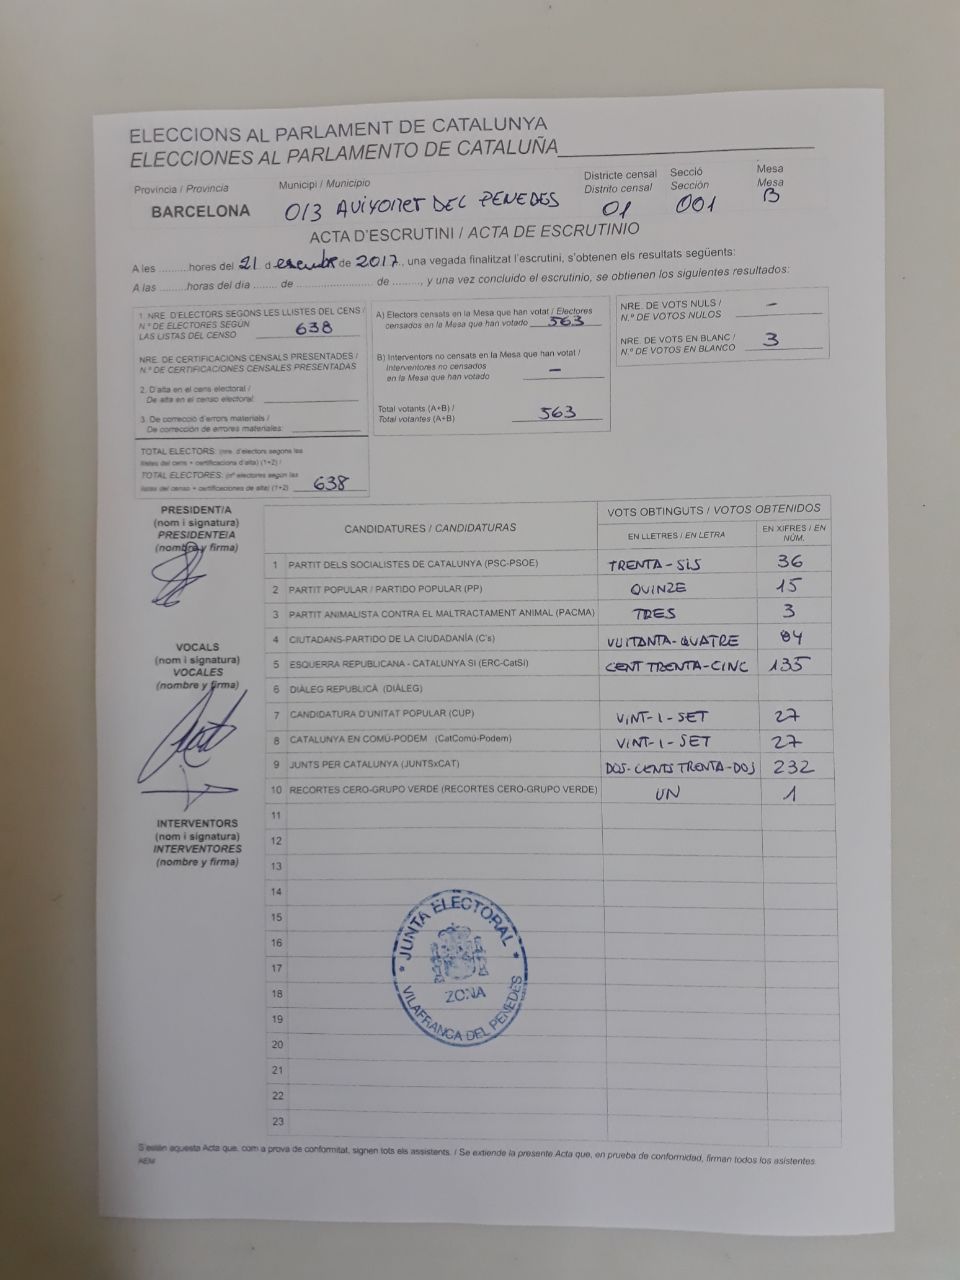 ELECCIONS AL PARLAMENT DE CATALUNYA
ELECCIONES AL PARLAMENTO DE CATALUÑA
Provincia / Provincia
BARCELONA
Municipi / Municipio
013 AVIYONET DEL PENEDES
Districte censal
Distrito censal
01
Secció
Sección
001
Mesa
Mesa
B
ACTA D'ESCRUTINI / ACTA DE ESCRUTINIO
A les .........hores del 21 d esembre de 2017.., una vegada finalitzat l'escrutini, s'obtenen els resultats següents:
A las .........horas del día ........ de ........................ de ........., y una vez concluido el escrutinio, se obtienen los siguientes resultados:
1. NRE. D'ELECTORS SEGONS LES LLISTES DEL CENS /
N.º DE ELECTORES SEGÚN
LAS LISTAS DEL CENSO 638
NRE. DE CERTIFICACIONS CENSALS PRESENTADES /
N.º DE CERTIFICACIONES CENSALES PRESENTADAS
2. D'alta en el cens electoral /
De alta en el censo electoral:
3. De correcció d'errors materials /
De corrección de errores materiales:
TOTAL ELECTORS: (nre. d'electors segons les
llistes del cens + certificacions d'alta) (1+2) /
TOTAL ELECTORES: (nº electores según las
listas del censo + certificaciones de alta) (1+2) 638
A) Electors censats en la Mesa que han votat / Electores
censados en la Mesa que han votado 563
B) Interventors no censats en la Mesa que han votat /
Interventores no censados
en la Mesa que han votado –
Total votants (A+B) /
Total votantes (A+B) 563
NRE. DE VOTS NULS /
N.º DE VOTOS NULOS –
NRE. DE VOTS EN BLANC /
N.º DE VOTOS EN BLANCO 3
PRESIDENT/A
(nom i signatura)
PRESIDENTE/A
(nombre y firma)
VOCALS
(nom i signatura)
VOCALES
(nombre y firma)
INTERVENTORS
(nom i signatura)
INTERVENTORES
(nombre y firma)
CANDIDATURES / CANDIDATURAS
VOTS OBTINGUTS / VOTOS OBTENIDOS
EN LLETRES / EN LETRA
EN XIFRES / EN NÚM.
1 PARTIT DELS SOCIALISTES DE CATALUNYA (PSC-PSOE) TRENTA-SIS 36
2 PARTIT POPULAR / PARTIDO POPULAR (PP) QUINZE 15
3 PARTIT ANIMALISTA CONTRA EL MALTRACTAMENT ANIMAL (PACMA) TRES 3
4 CIUTADANS-PARTIDO DE LA CIUDADANÍA (C's) VUITANTA-QUATRE 84
5 ESQUERRA REPUBLICANA - CATALUNYA SÍ (ERC-CatSí) CENT TRENTA-CINC 135
6 DIÀLEG REPUBLICÀ (DIÀLEG)
7 CANDIDATURA D'UNITAT POPULAR (CUP) VINT-I-SET 27
8 CATALUNYA EN COMÚ-PODEM (CatComú-Podem) VINT-I-SET 27
9 JUNTS PER CATALUNYA (JUNTSxCAT) DOS-CENTS TRENTA-DOS 232
10 RECORTES CERO-GRUPO VERDE (RECORTES CERO-GRUPO VERDE) UN 1
11
12
13
14
15
16
17
18
19
20
21
22
23
* JUNTA ELECTORAL *
ZONA
VILAFRANCA DEL PENEDÈS
S'estén aquesta Acta que, com a prova de conformitat, signen tots els assistents. / Se extiende la presente Acta que, en prueba de conformidad, firman todos los asistentes.